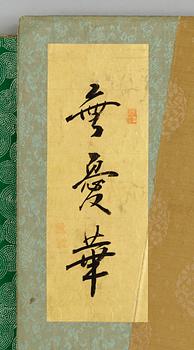 無憂華